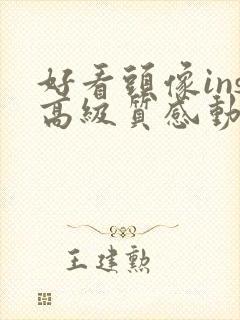 好看頭像ins
高級質感動
王建勲